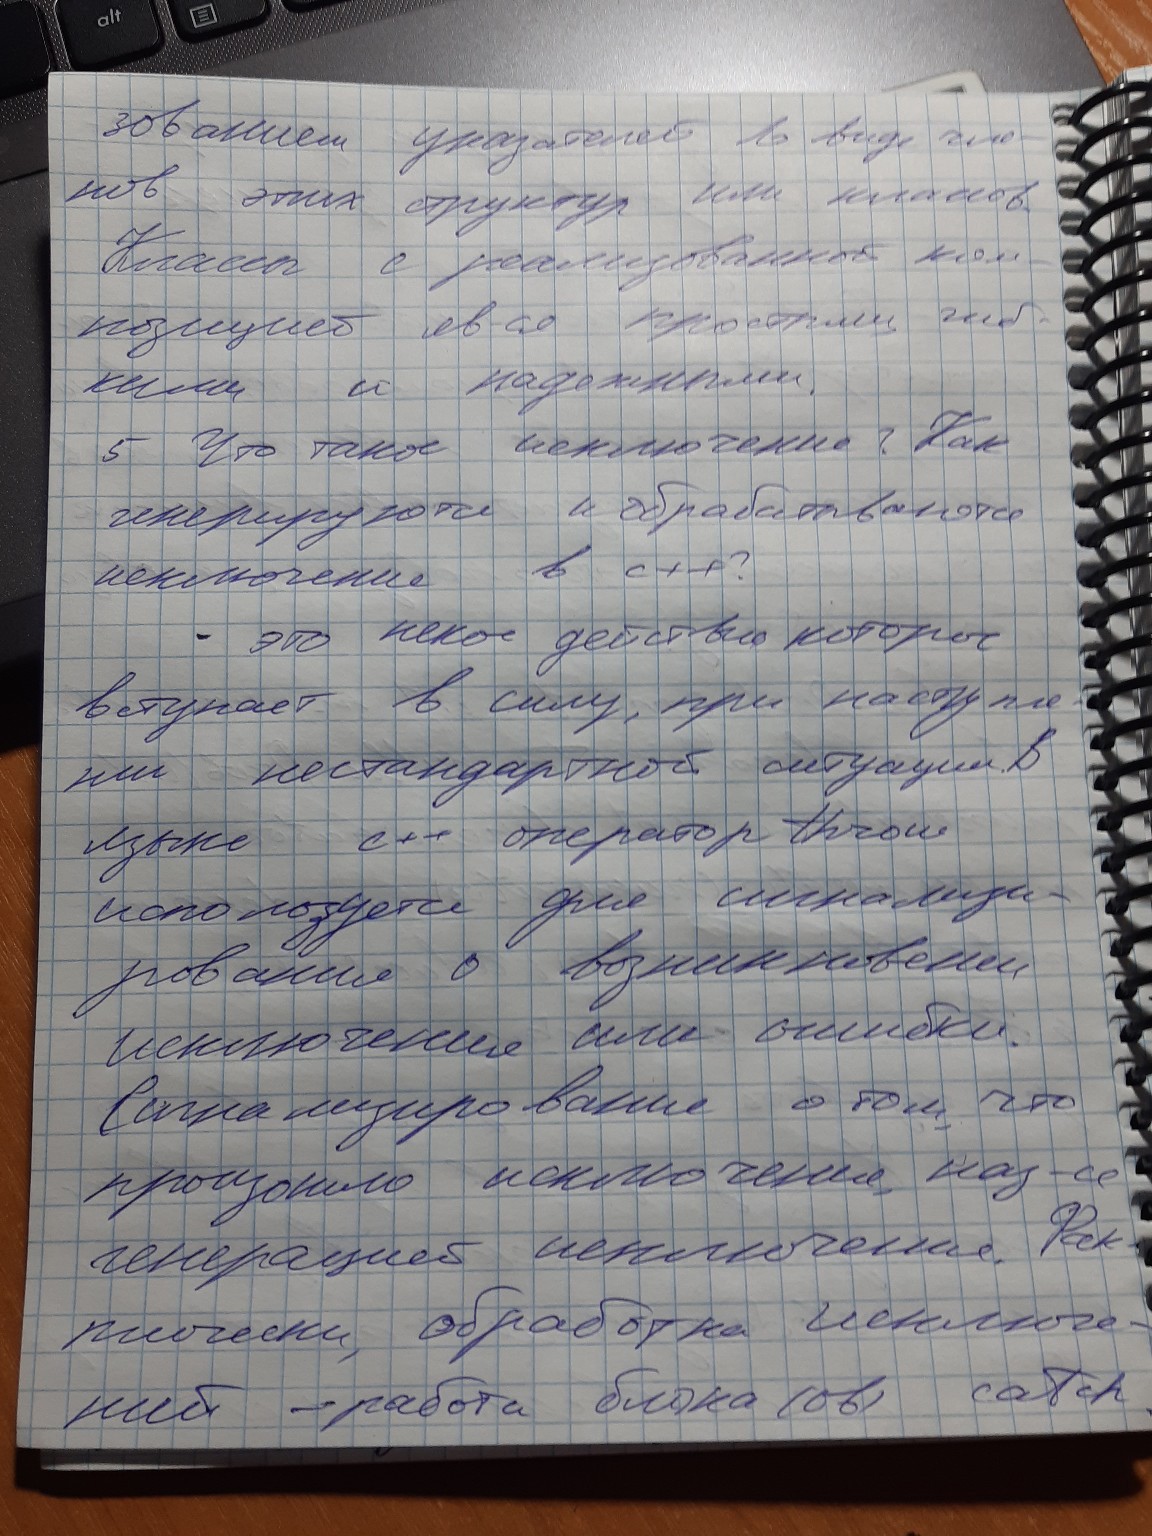 alt
зованием указателей в виде чле-
нов этих структур или классов.
Классы с реализованной ком-
позицией яв-ся простыми, гиб-
кими и надежными.
5 Что такое исключение? Как
генерируются и обрабатываются
исключение в с++?
- это некое действие которое
вступает в силу, при наступле-
нии нестандартной ситуации. В
языке с++ оператор throw
используется для сигнализи-
рования о возникновении
исключения или ошибки.
Сигнализирование о том, что
произошло исключение, наз-ся
генерацией исключения. Фак-
тически, обработка исключе-
ний - работа блока (ов) catch.